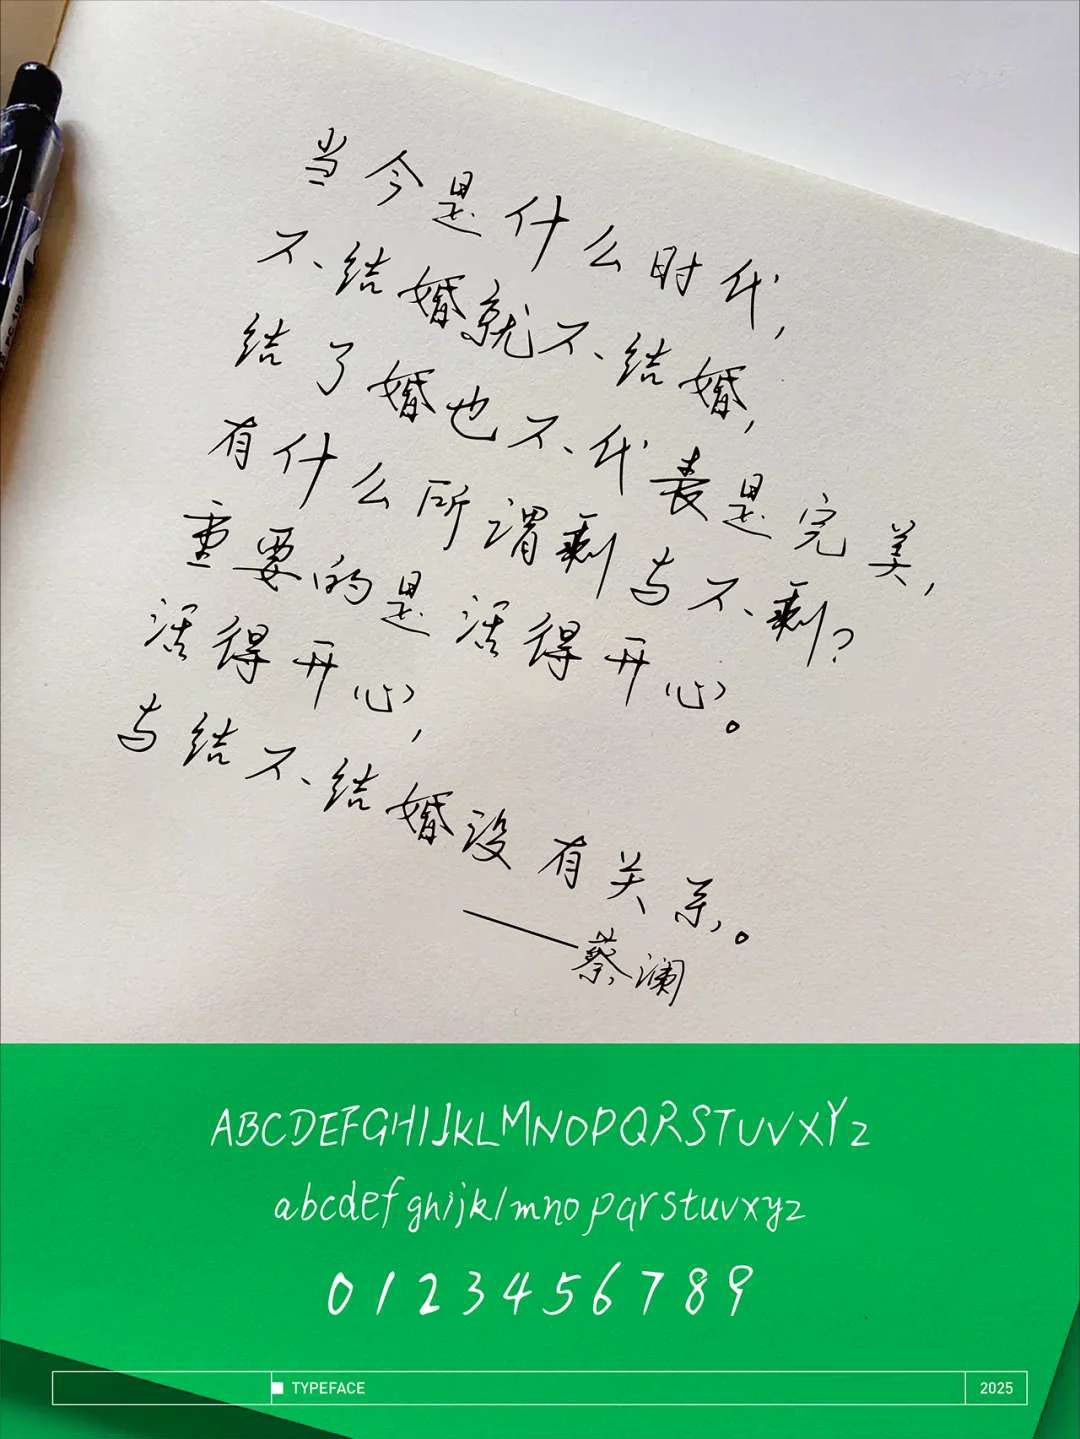 当今是什么时代，
不结婚就不结婚，
结了婚也不代表是完美，
有什么所谓剩与不剩？
重要的是活得开心。
活得开心，
与结不结婚没有关系。
——蔡澜
ABCDEFGHIJKLMNOPQRSTUVXYZ
abcdefghijklmnopqrstuvxyz
0123456789
TYPEFACE
2025